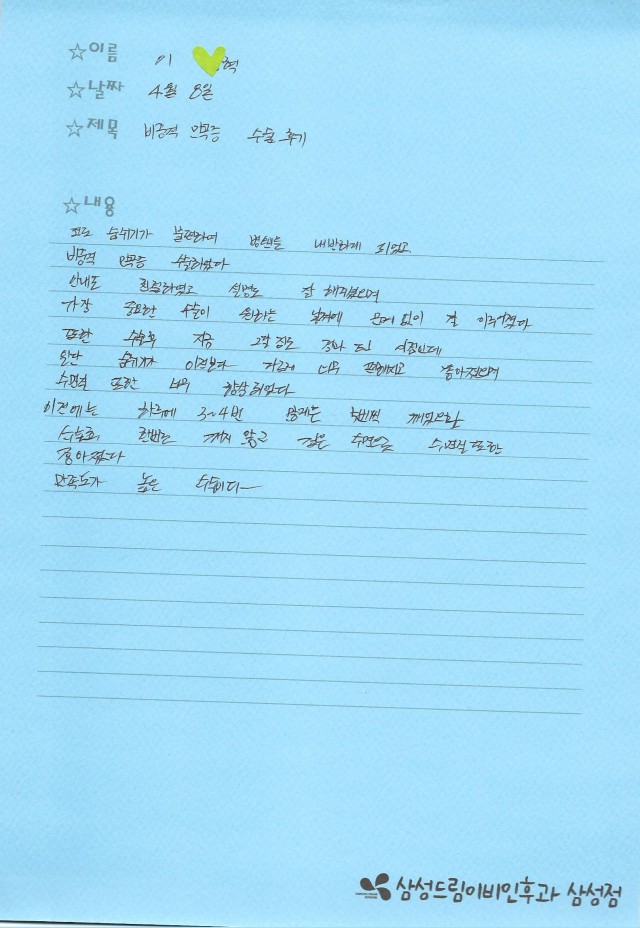 ☆이름 이 혁
☆날짜 4월 8일
☆제목 비중격 만곡증 수술 후기
☆내용
코로 숨쉬기가 불편하여 병원을 내방하게 되었고
비중격 만곡증 수술하였다
안내도 친절하였고 설명도 잘 해주셨으며
가장 중요한 수술이 원하는 날짜에 문제 없이 잘 이루어졌다
또한 수술후 지금 2달 정도 경과 된 시점인데
일단 숨쉬기가 이전보다 너무 편해지고 좋아졌으며
수면질 또한 너무 향상되었다
이전에는 하루에 3~4번 많게는 깨었으나
수술후 한번도 깨지 않고 깊은 수면을 수면질 또한
좋아졌다
만족도가 높은 수술이다
삼성드림이비인후과 삼성점